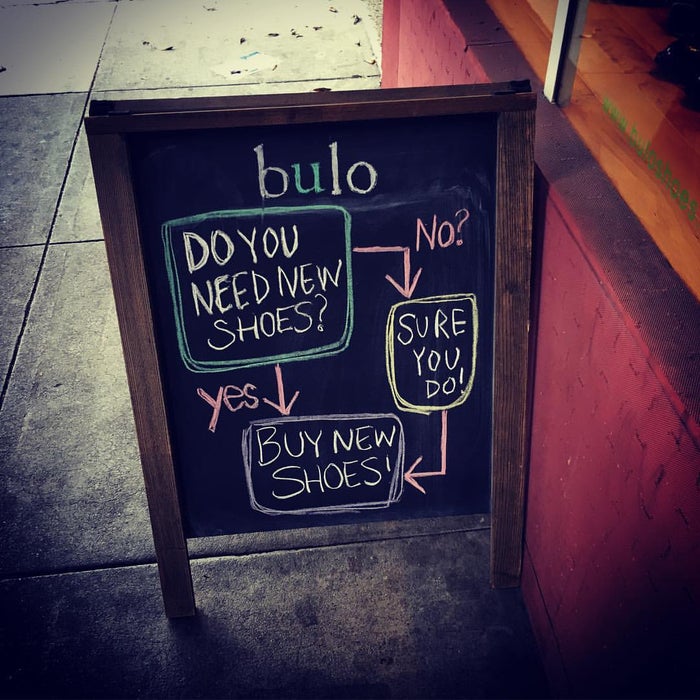 bulo
DO YOU
NEED NEW
SHOES?
No?
SURE
YOU
DO!
yes
BUY NEW
SHOES!